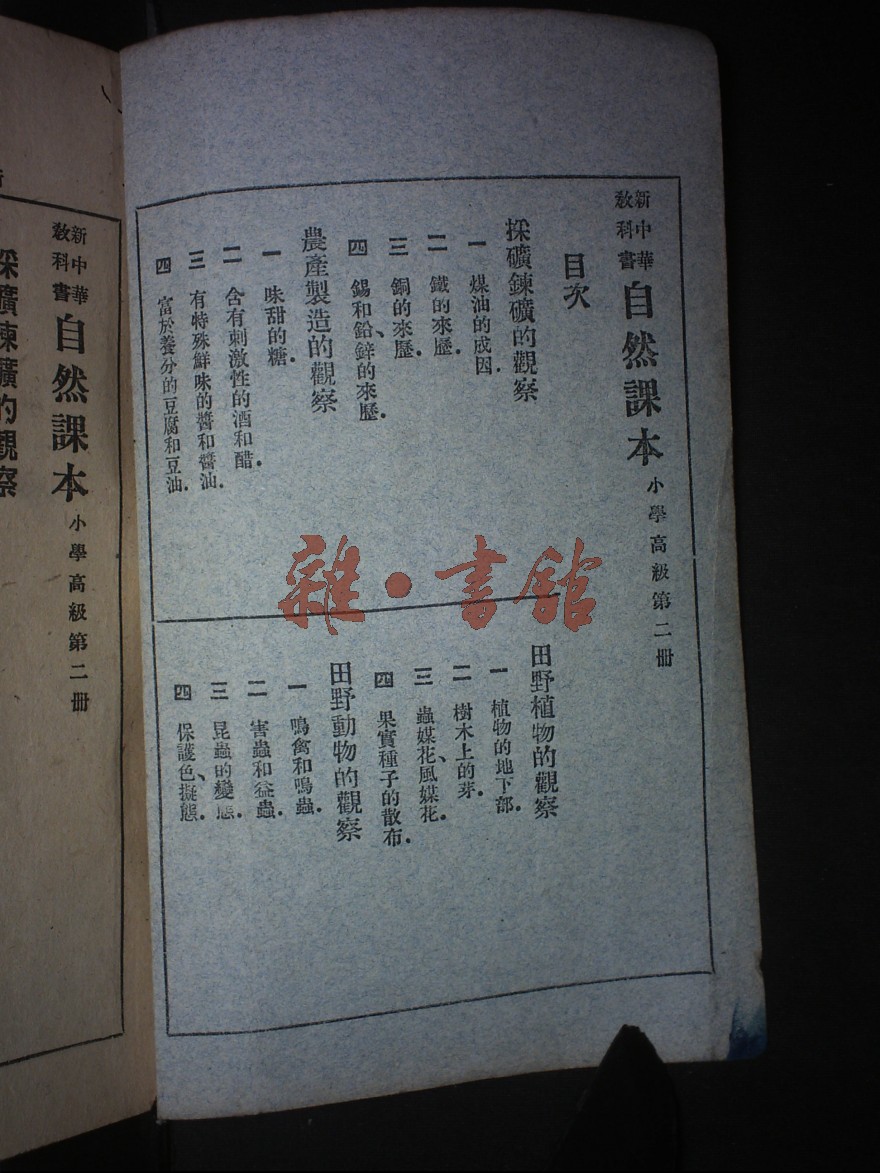 新中華
教科書
自然課本 小學高級第二册
目次
採礦鍊礦的觀察
一 煤油的成因.
二 鐵的來歷.
三 銅的來歷.
四 錫和鉛、鋅的來歷.
農產製造的觀察
一 味甜的糖.
二 含有刺激性的酒和醋.
三 有特殊鮮味的醬和醬油.
四 富於養分的豆腐和豆油.
田野植物的觀察
一 植物的地下部.
二 樹木上的芽.
三 蟲媒花、風媒花.
四 果實種子的散布.
田野動物的觀察
一 鳴禽和鳴蟲.
二 害蟲和益蟲.
三 昆蟲的變態.
四 保護色、擬態.
雜·書館
新中華
教科書
自然課本 小學高級第二册
採礦鍊礦的觀察